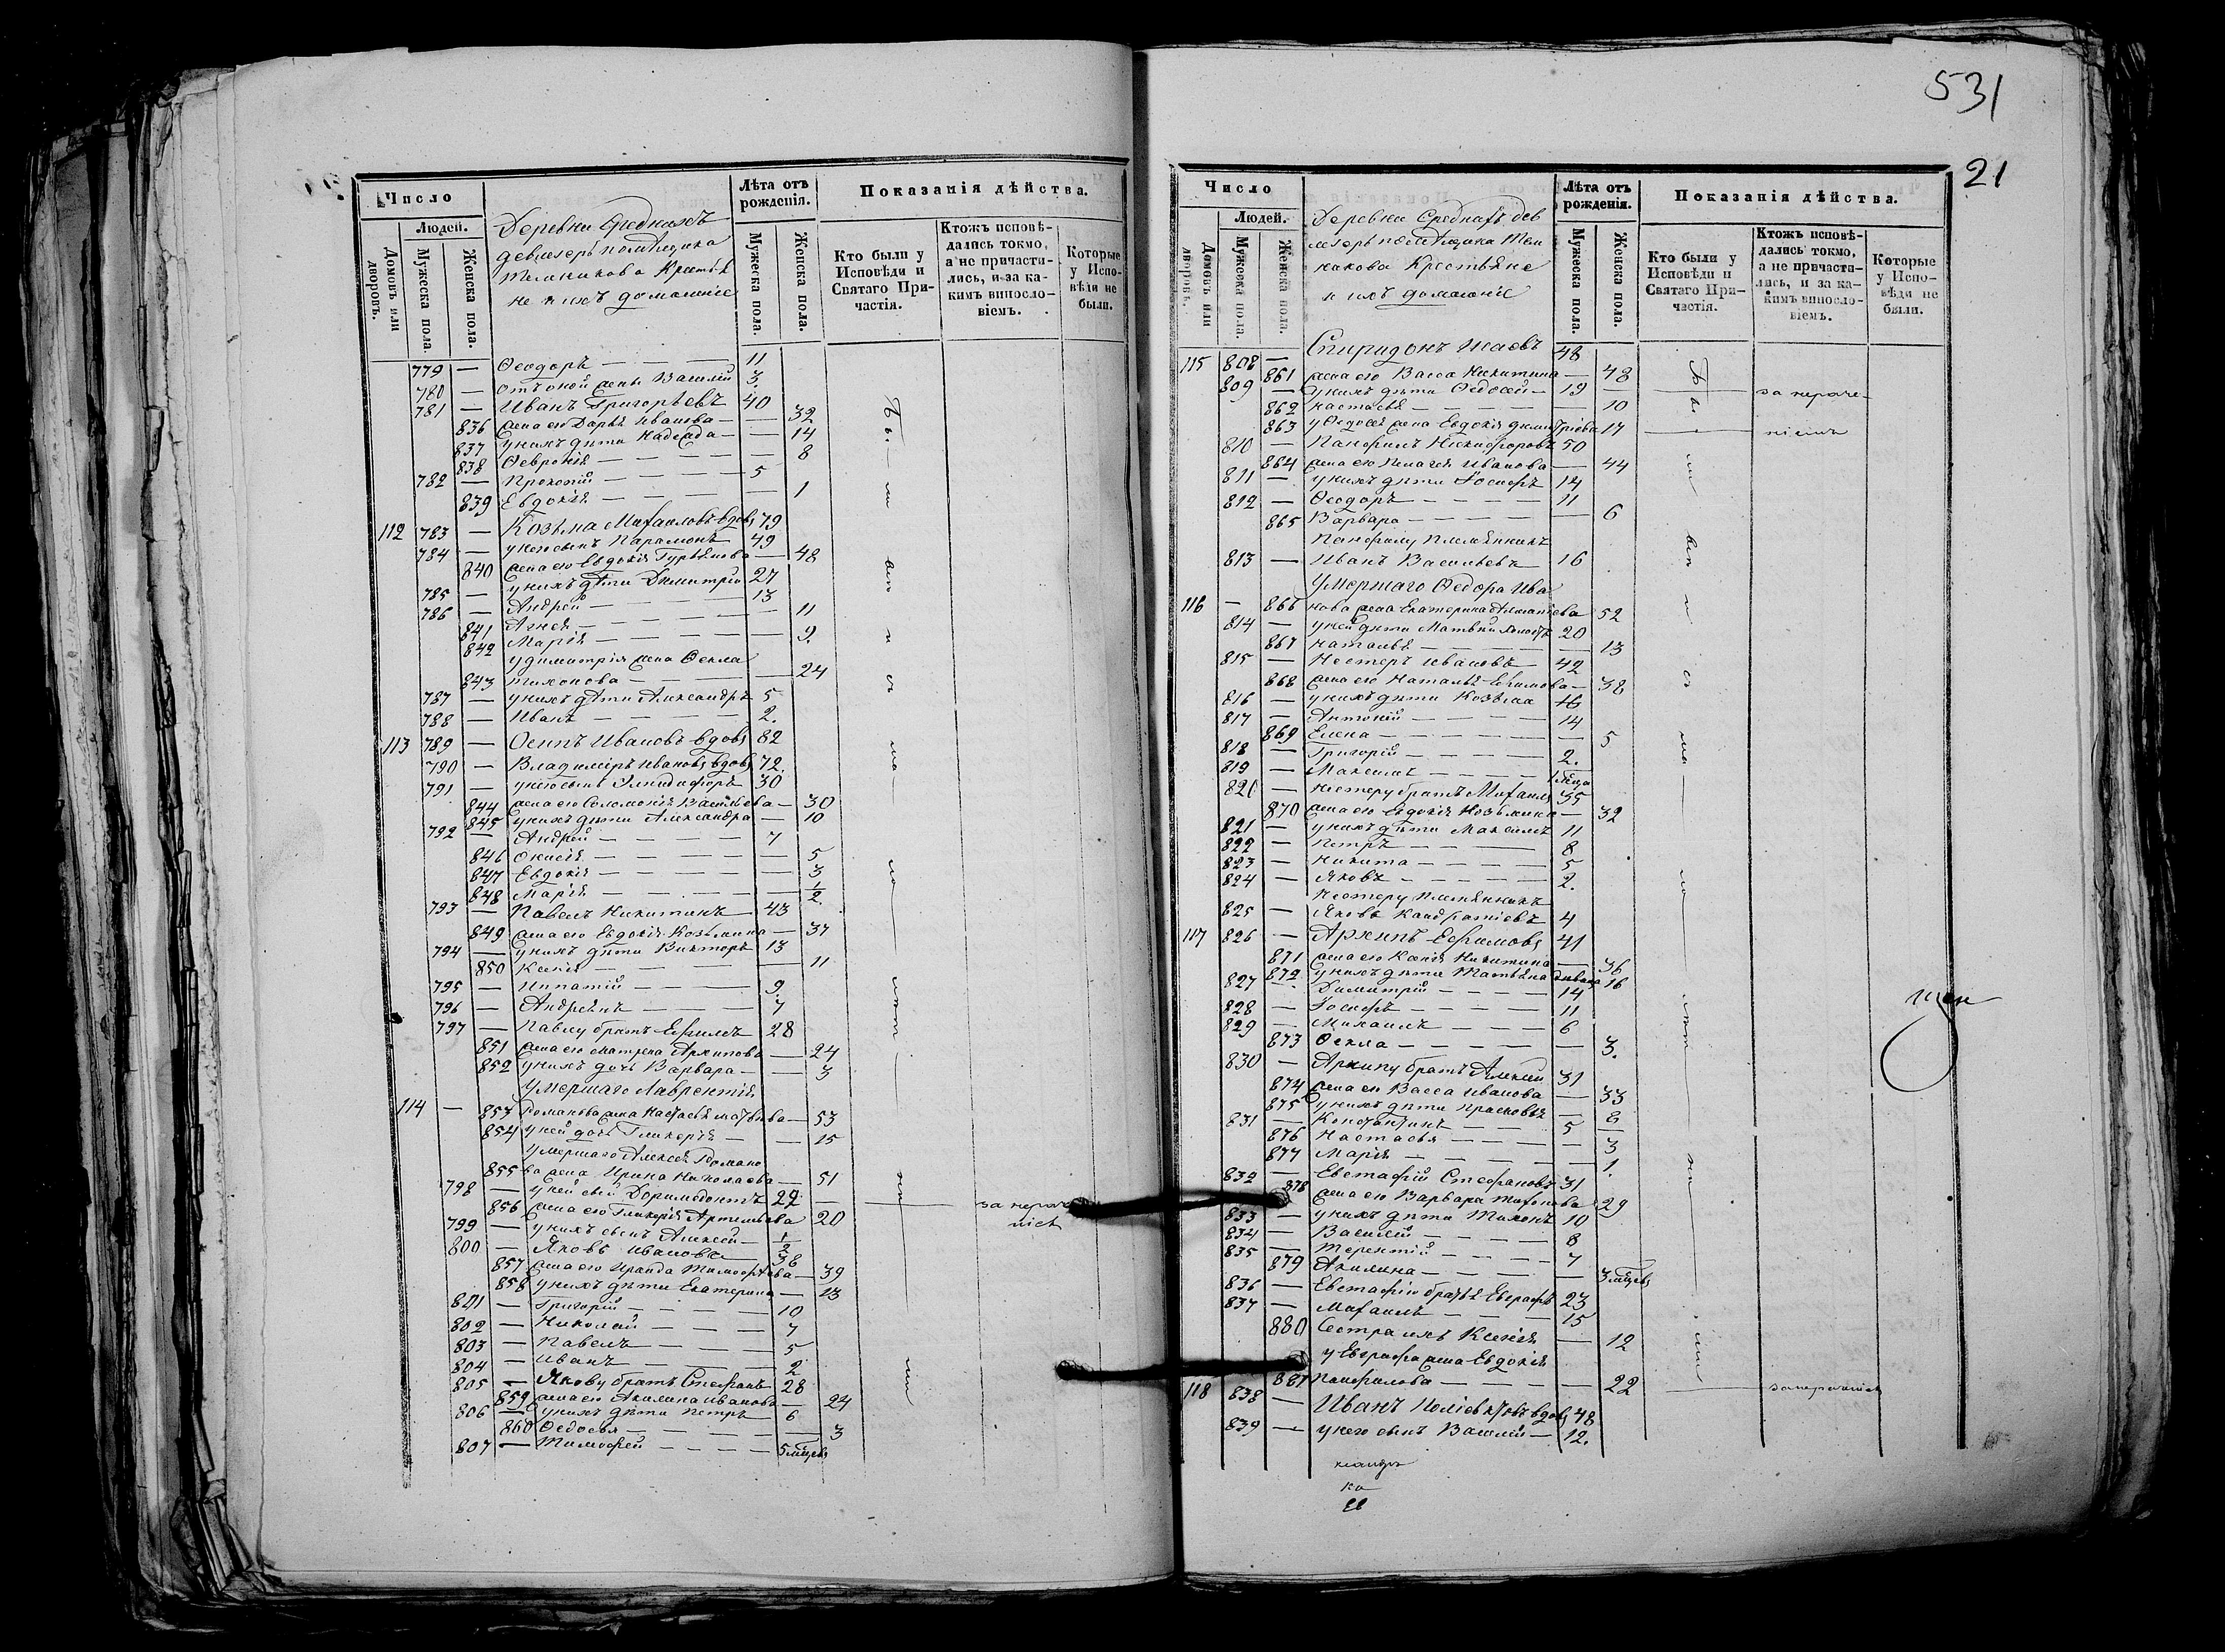 531
21
Число
Людей.
Домовъ или дворовъ.
Мужеска пола.
Женска пола.
Деревни Среднихъ
девлезерь помѣщика
Крестья
не и ихъ домашніе
Лѣта отъ рожденія.
Мужеска пола.
Женска пола.
Показанія дѣйства.
Кто были у Исповѣди и Святаго Причастія.
Ктожъ исповѣдались токмо, а не причастились, и за какимъ винословіемъ.
Которые у Исповѣди не были.
779 — Ѳеодоръ — — — 11
780 — Василій 3
781 — Иванъ Григорьевъ 40
836 жена его Дарья Иванова — 32
837 у нихъ дѣти Надежда — 14
838 Ѳевронія — — — 8
782 — Прокопій — — — 5
839 Евдокія — — — 1
112 783 — Козьма Михаиловъ вдовъ 79
784 — у него сынъ Парамонъ 49
840 жена его Евдокія Гурьянова — 48
785 — у нихъ дѣти Димитрій 27
786 — Андрей — — — 13
841 — — — 11
842 Марія — — — 9
у Димитрія жена Ѳекла
843 Тихонова — — 24
787 — у нихъ дѣти Александръ 5
788 — Иванъ — — — 2.
113 789 — Осипъ Ивановъ вдовъ 82
790 — Владимиръ Ивановъ вдовъ 72.
791 — у него сынъ Элпидифоръ 30
844 жена его Соломонія Васильева — 30
845 у нихъ дѣти Александра — 10
792 — Андрей — — — 7
846 — — — 5
847 Евдокія — — — 3
848 Марія — — — 1/2
793 — Павелъ Никитинъ 43
849 жена его Евдокія Козьмина — 37
794 — у нихъ дѣти Викторъ 13
850 Ксенія — — — 11
795 — Ипатій — — — 9.
796 — Андреянъ — — 7
797 — Павлу братъ Ефимъ 28
851 жена его Матрена Архипова — 24
852 у нихъ дочь Варвара — 3
Умершаго Лаврентія
114 — 853 Романова жена Настасья Матвѣева — 53
854 у ней дочь Гликерія — 15
Умершаго Алексѣя Романо
855 ва жена Ирина Николаева — 51
798 — у ней сынъ Доримедонтъ 22 за нераче
856 жена его Гликерія Артемьева 20 ніемъ
799 — у нихъ сынъ Алексѣй — 1/2
800 — Яковъ Ивановъ 38
857 жена его Ираида Тимофѣева — 39
858 у нихъ дѣти Екатерина — 13
801 — Григорій — — — 10
802 — Николай — — — 7
803 — Павелъ — — — 5
804 — Иванъ — — — 2
805 — Якову братъ Стефанъ 28
859 жена его Акилина Иванова — 24
806 — у нихъ дѣти Петръ 6
860 Ѳедосья — — — 3
807 — Тимофей — — — 5 мѣцевъ
Число
Людей.
Домовъ или дворовъ.
Мужеска пола.
Женска пола.
Деревни Среднихъ дев
лезерь помѣщика
Крестьяне
и ихъ домашніе
Лѣта отъ рожденія.
Мужеска пола.
Женска пола.
Показанія дѣйства.
Кто были у Исповѣди и Святаго Причастія.
Ктожъ исповѣдались токмо, а не причастились, и за какимъ винословіемъ.
Которые у Исповѣди не были.
115 808 — Спиридонъ Исаевъ 48
861 жена его Васса Никитина — 48
809 — у нихъ дѣти Ѳедосей — 19 за нераче-
862 Настасья — — — 10
863 у Ѳедосѣя жена Евдокія Димитріева 17 ніемъ
810 — Панфилъ Никифоровъ 50
864 жена его Пелагея Иванова — 44
811 — у нихъ дѣти Іосифъ 14
812 — Ѳеодоръ — — — 11
865 Варвара — — — 6
Панфилу племянникъ
813 — Иванъ Васильевъ 16
Умершаго Ѳедора Ива
116 — 866 нова жена Екатерина 52
814 — у ней дѣти Матвѣй 20
867 Наталья — — — 13
815 — Нестеръ Ивановъ 42
868 жена его Наталья Ефимова — 38
816 — у нихъ дѣти Козьма 16
817 — Антоній — — — 14
869 Елена — — — 5
818 — Григорій — — — 2.
819 — Максимъ — — —
820 — Нестеру братъ Михаилъ 35
870 жена его Евдокія Козьмина — 32
821 — у нихъ дѣти Максимъ 11
822 — Петръ — — — 8
823 — Никита — — — 5
824 — Яковъ — — — 2.
Нестеру племянникъ
825 — Яковъ Кандратіевъ 4
117 826 — Архипъ Ефимовъ 41
871 жена его Ксенія Никитина — 36
872 у нихъ дѣти Татьяна 16
827 — Димитрій — — — 14
828 — Іосифъ — — — 11
829 — Михаилъ — — — 6
873 Ѳекла — — — 3.
830 — Архипу братъ Алексѣй 31
874 жена его Васса Иванова — 33
875 у нихъ дѣти Прасковья — 8
831 — Константинъ — — 5
876 Настасья — — — 3
877 Марія — — — 1.
832 — Евстафій Стефановъ 31
878 жена его Варвара Тихонова 29
833 — у нихъ дѣти Тихонъ 10
834 — Василій — — — 8
835 — Терентій — — — 7
879 Акилина — — — 3 мѣцевъ
836 — Евстафію братья Евграфъ 23
837 — Михаилъ — — 15
880 Сестра ихъ Ксенія — 12
у Евграфа жена Евдокія
881 Панфилова — — — 22 за нераченіемъ
118 838 — Иванъ вдовъ 48
839 — у него сынъ Василій — 12.